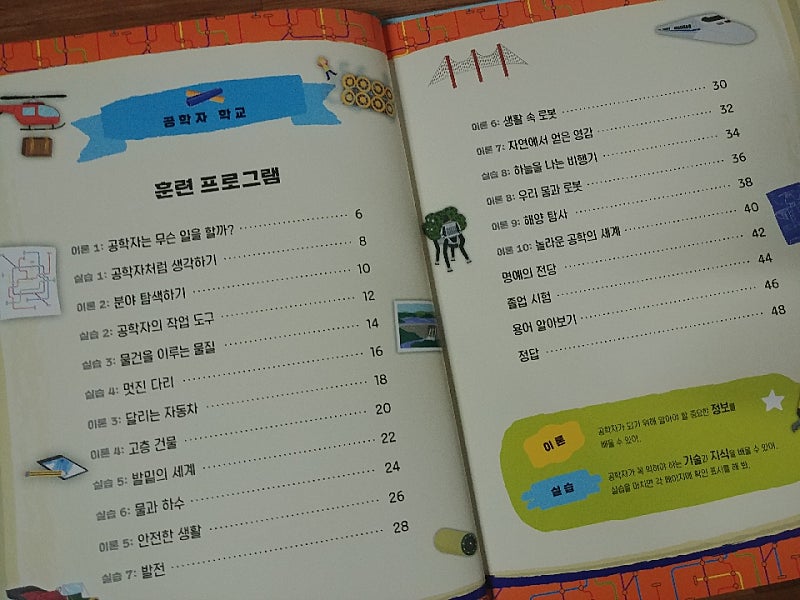 공학자 학교
훈련 프로그램
이론 1: 공학자는 무슨 일을 할까? 6
실습 1: 공학자처럼 생각하기 8
이론 2: 분야 탐색하기 10
실습 2: 공학자의 작업 도구 12
실습 3: 물건을 이루는 물질 14
실습 4: 멋진 다리 16
이론 3: 달리는 자동차 18
이론 4: 고층 건물 20
실습 5: 발밑의 세계 22
실습 6: 물과 하수 24
이론 5: 안전한 생활 26
실습 7: 발전 28
이론 6: 생활 속 로봇 30
이론 7: 자연에서 얻은 영감 32
실습 8: 하늘을 나는 비행기 34
이론 8: 우리 몸과 로봇 36
이론 9: 해양 탐사 38
이론 10: 놀라운 공학의 세계 40
명예의 전당 42
졸업 시험 44
용어 알아보기 46
정답 48
이론
공학자가 되기 위해 알아야 할 중요한 정보를
배울 수 있어.
실습
공학자가 꼭 익혀야 하는 기술과 지식을 배울 수 있어.
실습을 마치면 각 페이지에 확인 표시를 해 봐.